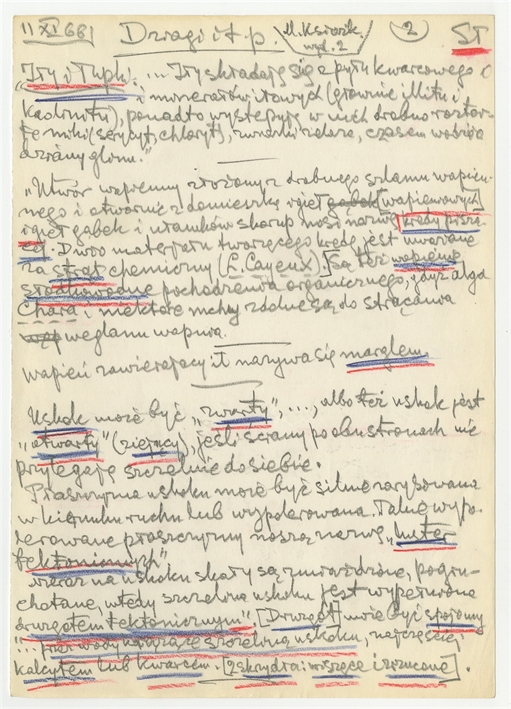 11 XI 68 Druzgi i t.p. M. Książk. wyd. 2 2 ST
"Iły i łupki. ... Iły składają się z pyłu kwarcowego
i minerałów iłowych (głównie illitu i
kaolinitu), ponadto występują w nich drobno roztar-
te miki (serycyt, chloryt), związki żelaza, czasem wodziany glinu."
"Utwór wapienny złożony z drobnego szlamu wapien-
nego i otwornic z domieszką igieł gąbek [wapieniowych]
igieł gąbek i ułamków skorup nosi nazwę kredy piszą-
cej. Dwóo materjału tworzącego kredę jest uważane
za strąt chemiczny (L. Cayeux). Są też wapienie
słodkowodne pochodzenia organicznego, gdyż alga
Chara i niektóre mchy zdolne są do strącania
węg weglanu wapnia.
Wapień zawierający ił nazywa się marglem.
Uskok może być "zwarty", ..., albo też uskok jest
"otwarty" (ziejący), jeśli ściany po obu stronach nie
przylegają szczelnie do siebie.
Płaszczyzna uskoku może być silnie zarysowana
w kierunku ruchu lub wypolerowana. Takie wypo-
lerowane płaszczyzny noszą nazwę "luster
tektonicznych"
nieraz na uskoku skały są zmiażdżone, pogru-
chotane, wtedy szczelina uskoku jest wypełniona
druzgotem tektonicznym". [Druzgot] może być spojony
... przez wody krążące szczeliną uskoku, najczęściej
kalcytem lub kwarcem. [2 skrzydła: wiszące i zrzucone].